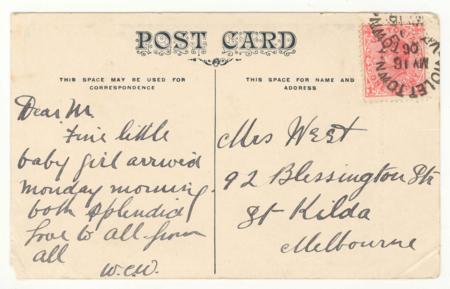 POST CARD
THIS SPACE MAY BE USED FOR
CORRESPONDENCE
THIS SPACE FOR NAME AND
ADDRESS
VIOLET TOWN
MY 16
06
Dear M
Fine little
baby girl arrived
Monday morning.
both splendid
Love to all from
all
W.C.W.
Mrs West
92 Blessington Str
St Kilda
Melbourne